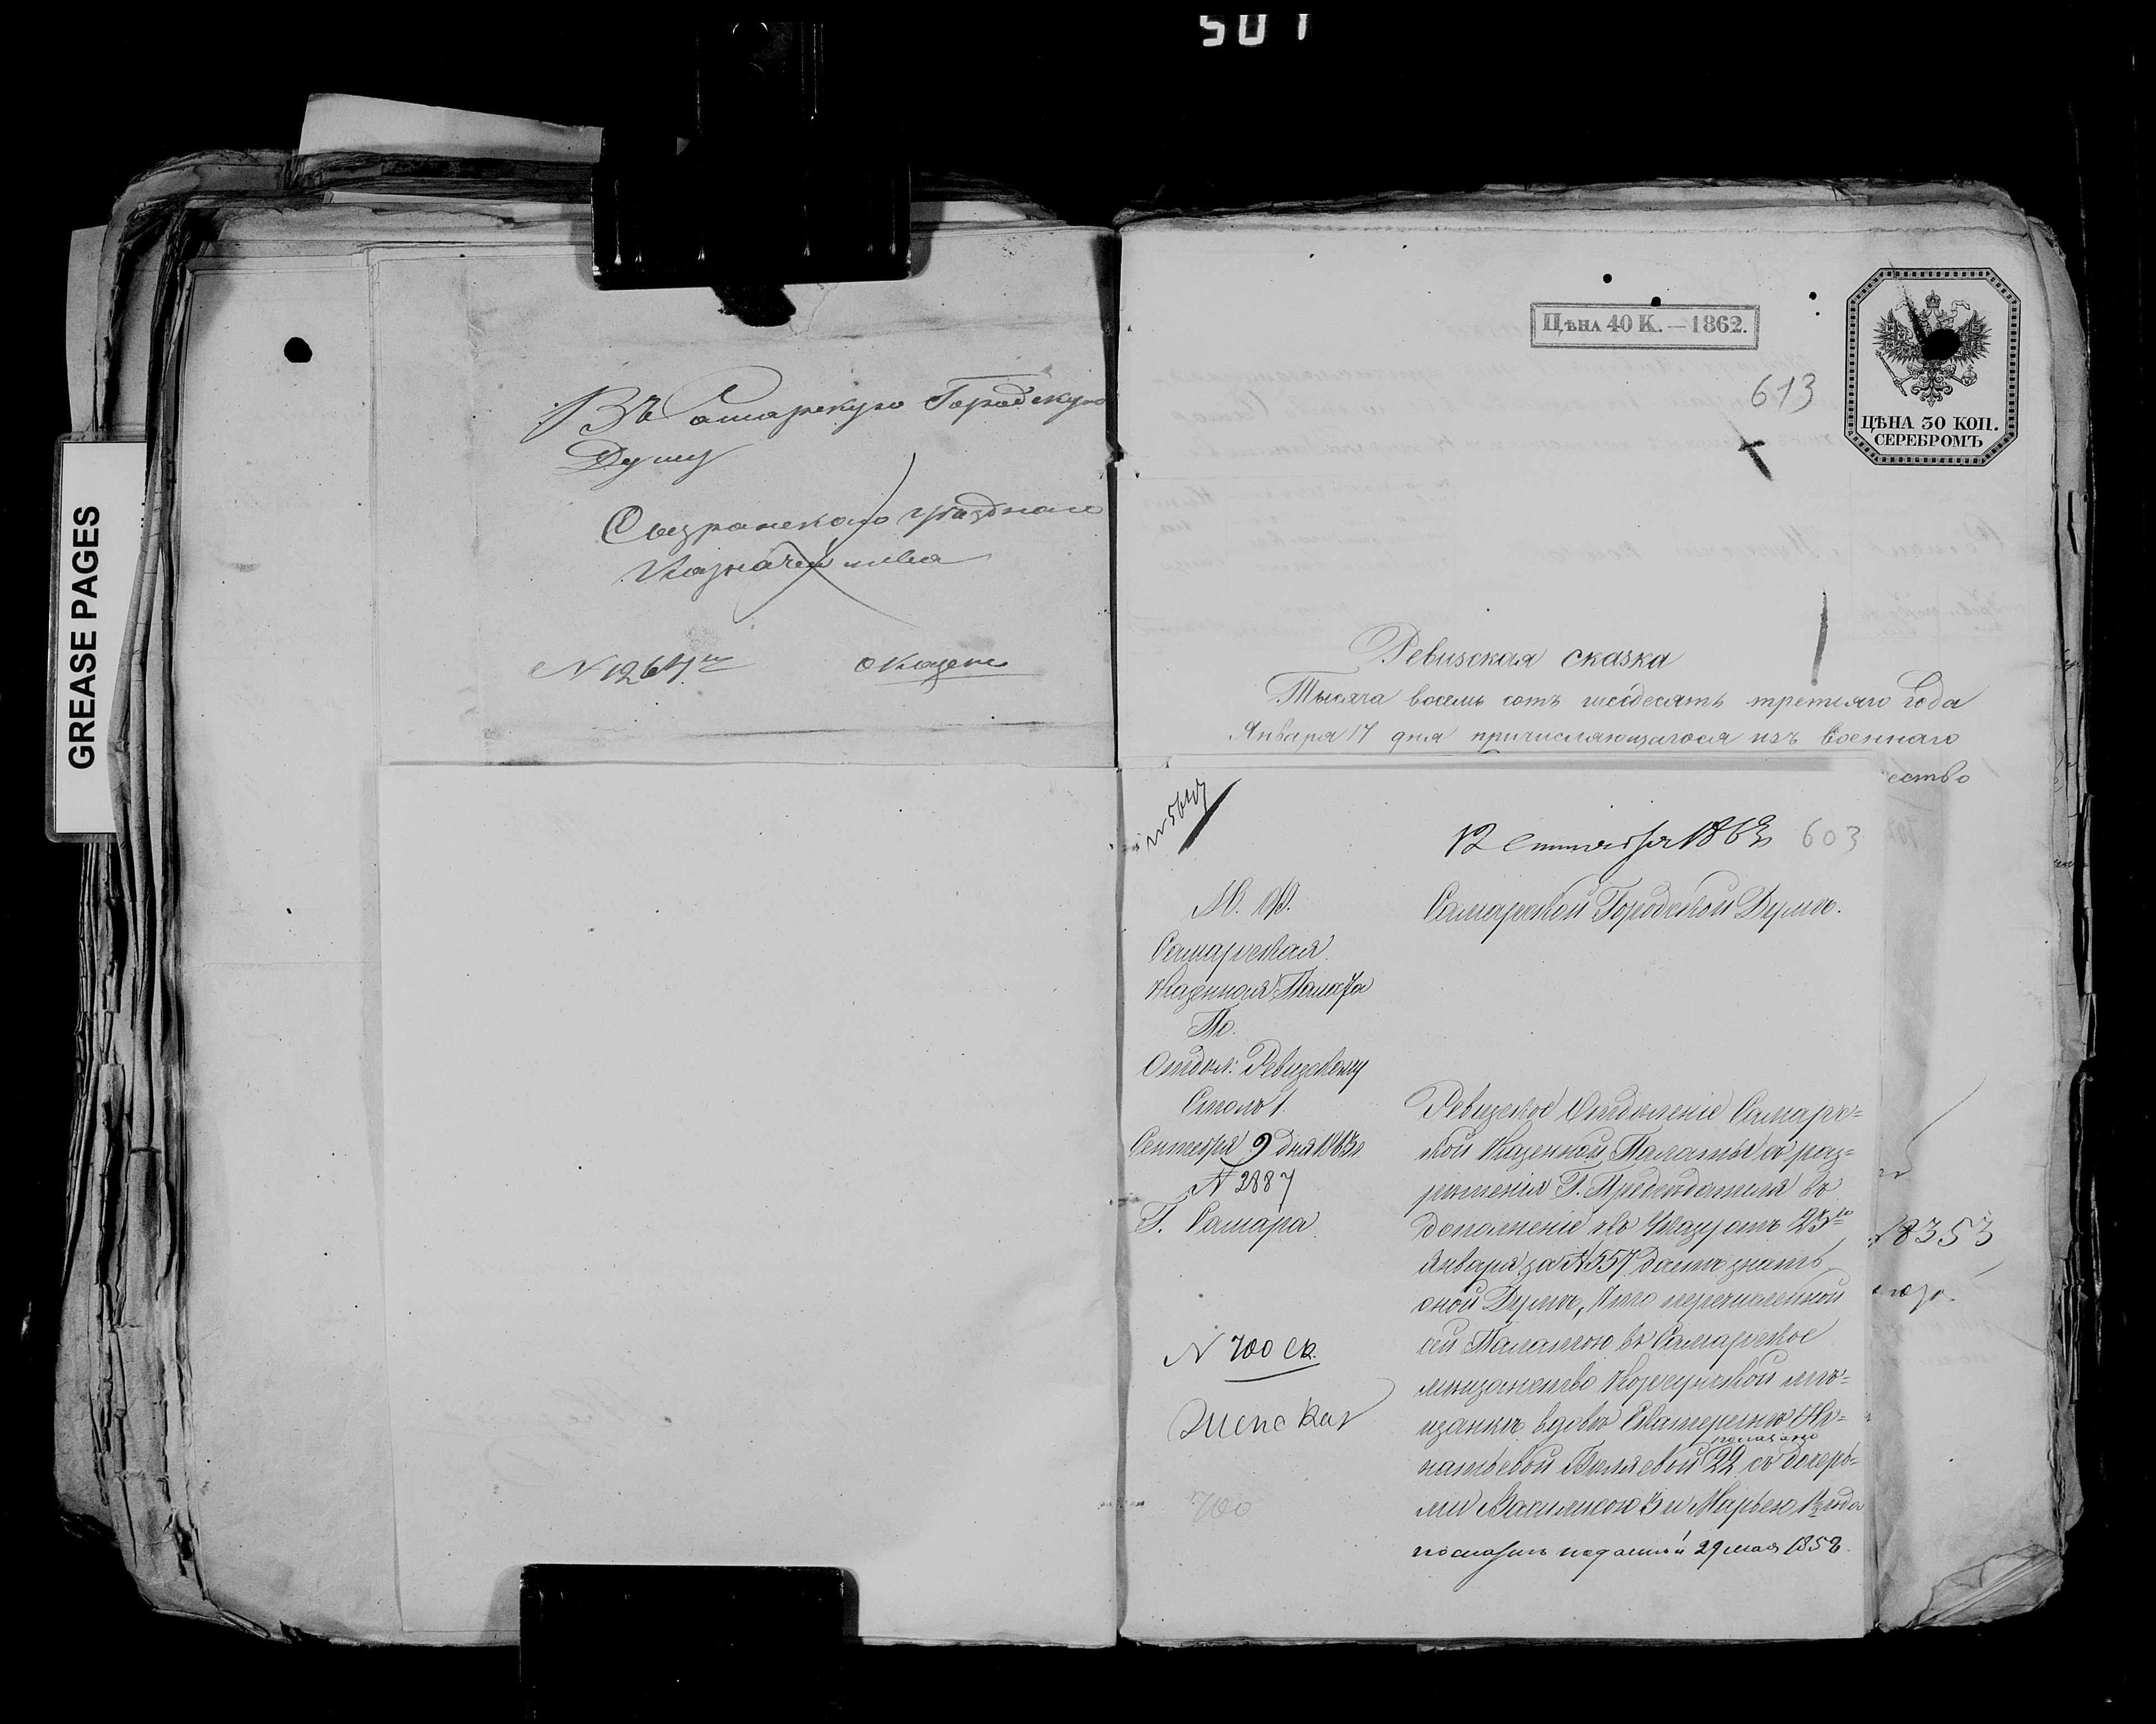 507
GREASE PAGES
Въ Самарскую Городскую
Думу
Сызранскаго уѣзднаго
Казначейства
N 1264
о Казен
ЦѢНА 40 К. — 1862.
613
ЦѢНА 30 КОП.
СЕРЕБРОМЪ
Ревизская сказка
Тысяча восемь сотъ шесдесятъ третьяго года
Января 17 дня причисляющагося изъ военнаго
ество
12 Сентября 1863
603
М. Ф.
Самарской Городской Думѣ.
Самарская
Казенная Палата
По
Отдѣл: Ревизскому
Столъ 1.
Сентября 9 дня 1863 г.
N 2887
Г. Самара
N 700 ск.
Женская
700
Ревизское Отдѣленіе Самарс=
кой Казенной Палаты съ раз=
рѣшенія Г. Предсѣдателя въ
дополненіе къ Указу отъ 25го
Января за N 557 даетъ знать
оной Думѣ, что перечисленной
сей Палатою въ Самарское
мѣщанство Корсунской мѣ=
щанкѣ вдовѣ Екатеринѣ Иг=
натьевой Бѣляевой 22 съ дочерь=
ми Василисою 3 и Марьею 1½ года
показано
по сказкѣ поданной 29 мая 1858
8353